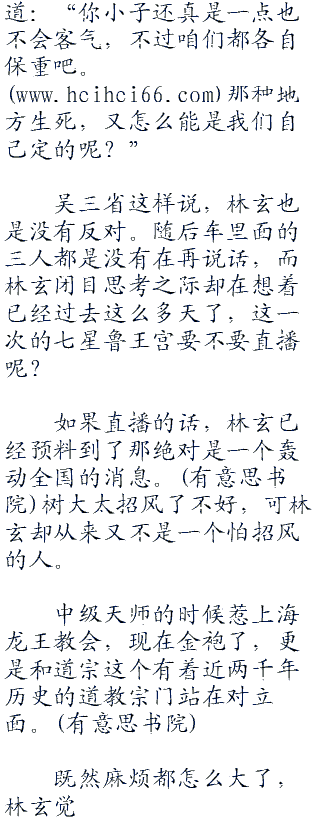 道：“你小子还真是一点也
不会客气，不过咱们都各自
保重吧。
(www.hcihci66.com)那种地
方生死，又怎么能是我们自
己定的呢？”
吴三省这样说，林玄也
是没有反对。随后车里面的
三人都是没有在再说话，而
林玄闭目思考之际却在想着
已经过去这么多天了，这一
次的七星鲁王宫要不要直播
呢？
如果直播的话，林玄已
经预料到了那绝对是一个轰
动全国的消息。(有意思书
院)树大太招风了不好，可林
玄却从来又不是一个怕招风
的人。
中级天师的时候惹上海
龙王教会，现在金袍了，更
是和道宗这个有着近两千年
历史的道教宗门站在对立
面。(有意思书院)
既然麻烦都怎么大了，
林玄觉